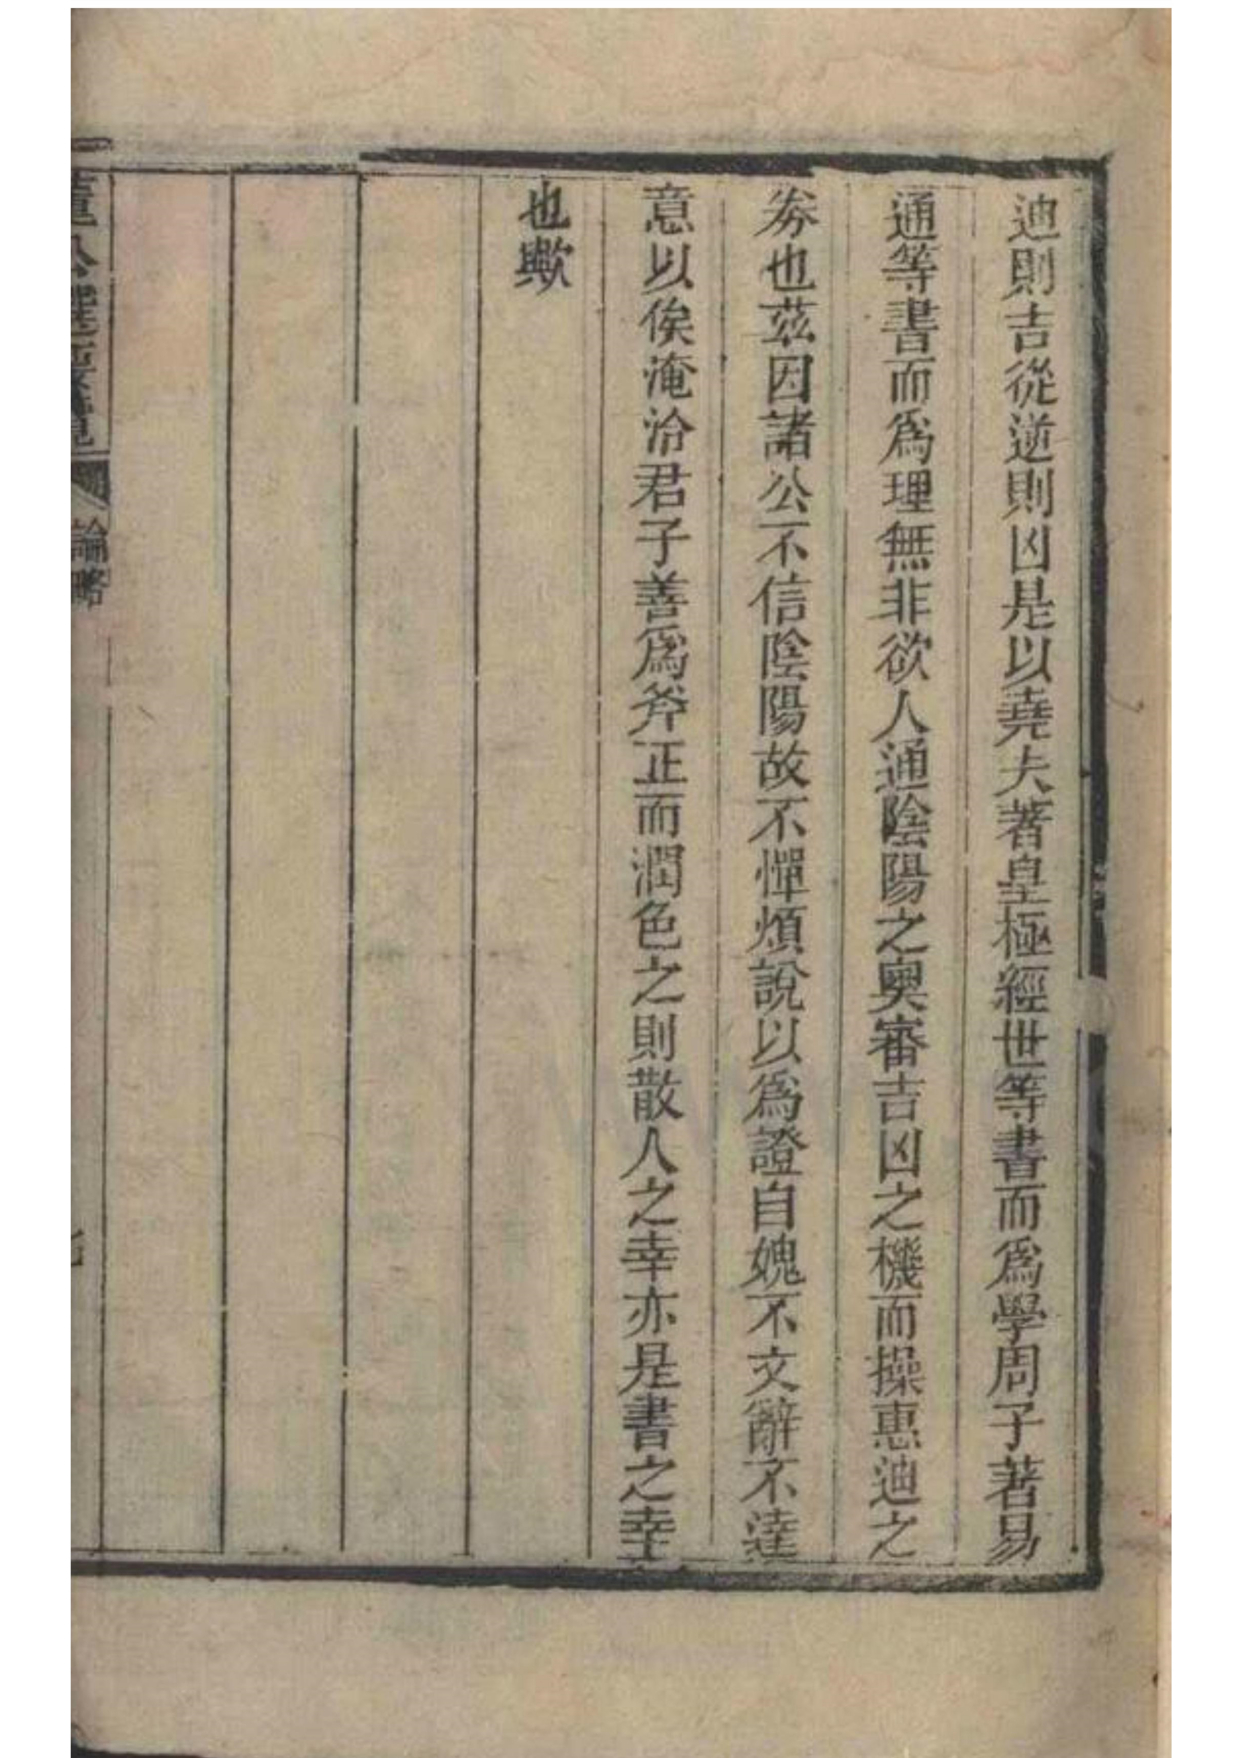 迪則吉從逆則凶是以堯夫著皇極經世等書而爲學周子著易
通等書而爲理無非欲人通陰陽之奧審吉凶之機而操惠迪之
券也茲因諸公不信陰陽故不憚煩說以爲證自媿不文辭不達
意以俟淹洽君子善爲斧正而潤色之則散人之幸亦是書之幸
也歟
董公選要覽
論略